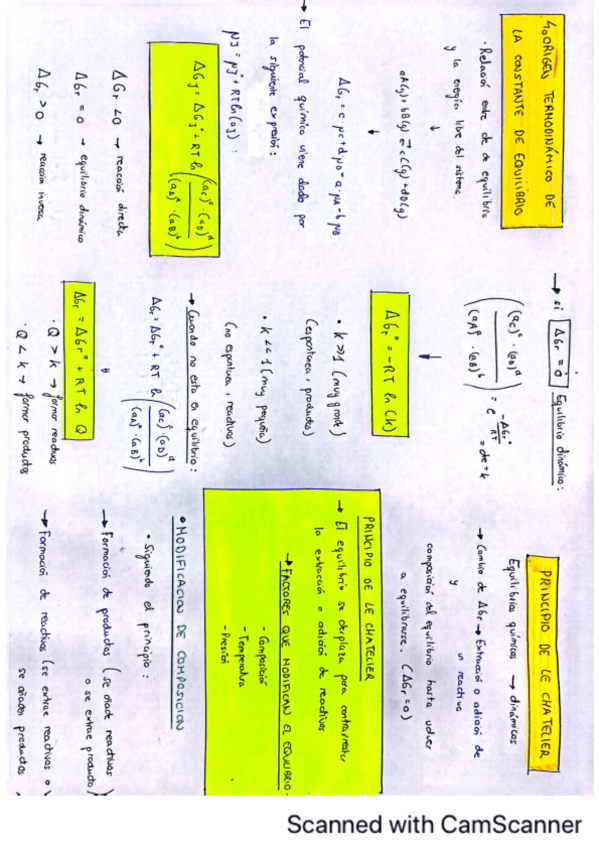 4. ORIGEN TERMODINÁMICO DE
LA CONSTANTE DE EQUILIBRIO
· Relación ente cte de equilibrio
y la energía libre del sistema
↓
aA(g) + bB(g) ⇌ cC(g) + dD(g)
↓
ΔGr = c·μc + d·μD - a·μA - b μB
→ El potencial químico viene dado por
la siguiente expresión:
μj = μj° + RT ln(aj) :
ΔGj = ΔGj° + RT ln ((ac)^c · (aD)^d / (aA)^a · (aB)^b)
ΔGr < 0 → reacción directa
ΔGr = 0 → equilibrio dinámico
ΔGr > 0 → reacción inversa
→ si ΔGr = 0 Equilibrio dinámico:
((ac)^c · (aD)^d / (aA)^a · (aB)^b) = e^(-ΔGr°/RT) = cte = k
↓
ΔGr° = -RT ln (k)
• k >> 1 (muy grande)
(espontánea, productos)
• k << 1 (muy pequeña)
(no espontánea, reactivos)
→ Cuando no esta en equilibrio:
ΔGr = ΔGr° + RT ln ((ac)^c · (aD)^d / (aA)^a · (aB)^b)
↓
ΔGr = ΔGr° + RT ln Q
· Q > k → formar reactivos
· Q < k → formar productos
PRINCIPIO DE LE CHATELIER
Equilibrios químicos → dinámicos
→ Cambio de ΔGr → Extracción o adición de
y un reactivo
composición del equilibrio hasta volver
a equilibrarse. (ΔGr = 0)
PRINCIPIO DE LE CHATELIER
→ El equilibrio se desplaza para contrarrestar
la extracción o adición de reactivos
→ FACTORES QUE MODIFICAN EL EQUILIBRIO
- Composición
- Temperatura
- Presión
• MODIFICACION DE COMPOSICION
• Siguiendo el principio:
→ Formación de productos (se añade reactivos
o se extrae producto)
→ Formación de reactivos (se extrae reactivos o
se añaden productos
Scanned with CamScanner